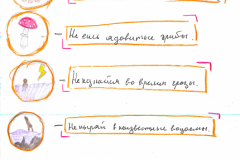 Не ешь ядовитые грибы.
Не купайся во время грозы.
Не ныряй в неизвестные водоёмы.